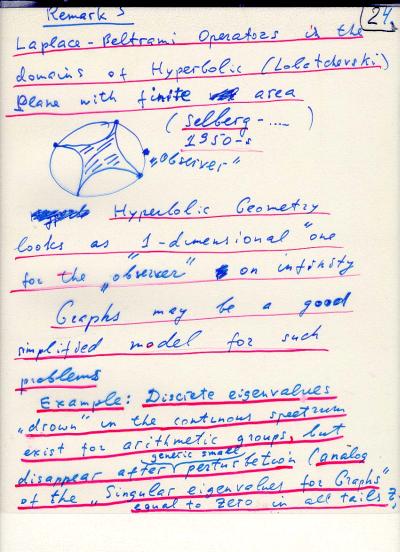 Remark 5
24.
Laplace-Beltrami Operators in the
domains of Hyperbolic (Lobatchevski)
Plane with finite area
(Selberg-.... )
1950-s
"Observer"
Hyperbolic Geometry
looks as "1-dimensional" one
for the "observer" on infinity
Graphs may be a good
simplified model for such
problems
Example: Discrete eigenvalues
"drown" in the continous spectrum
exist for arithmetic groups, but
generic small
disappear after perturbetion (analog
of the "Singular eigenvalues for Graphs"
equal to zero in all tails